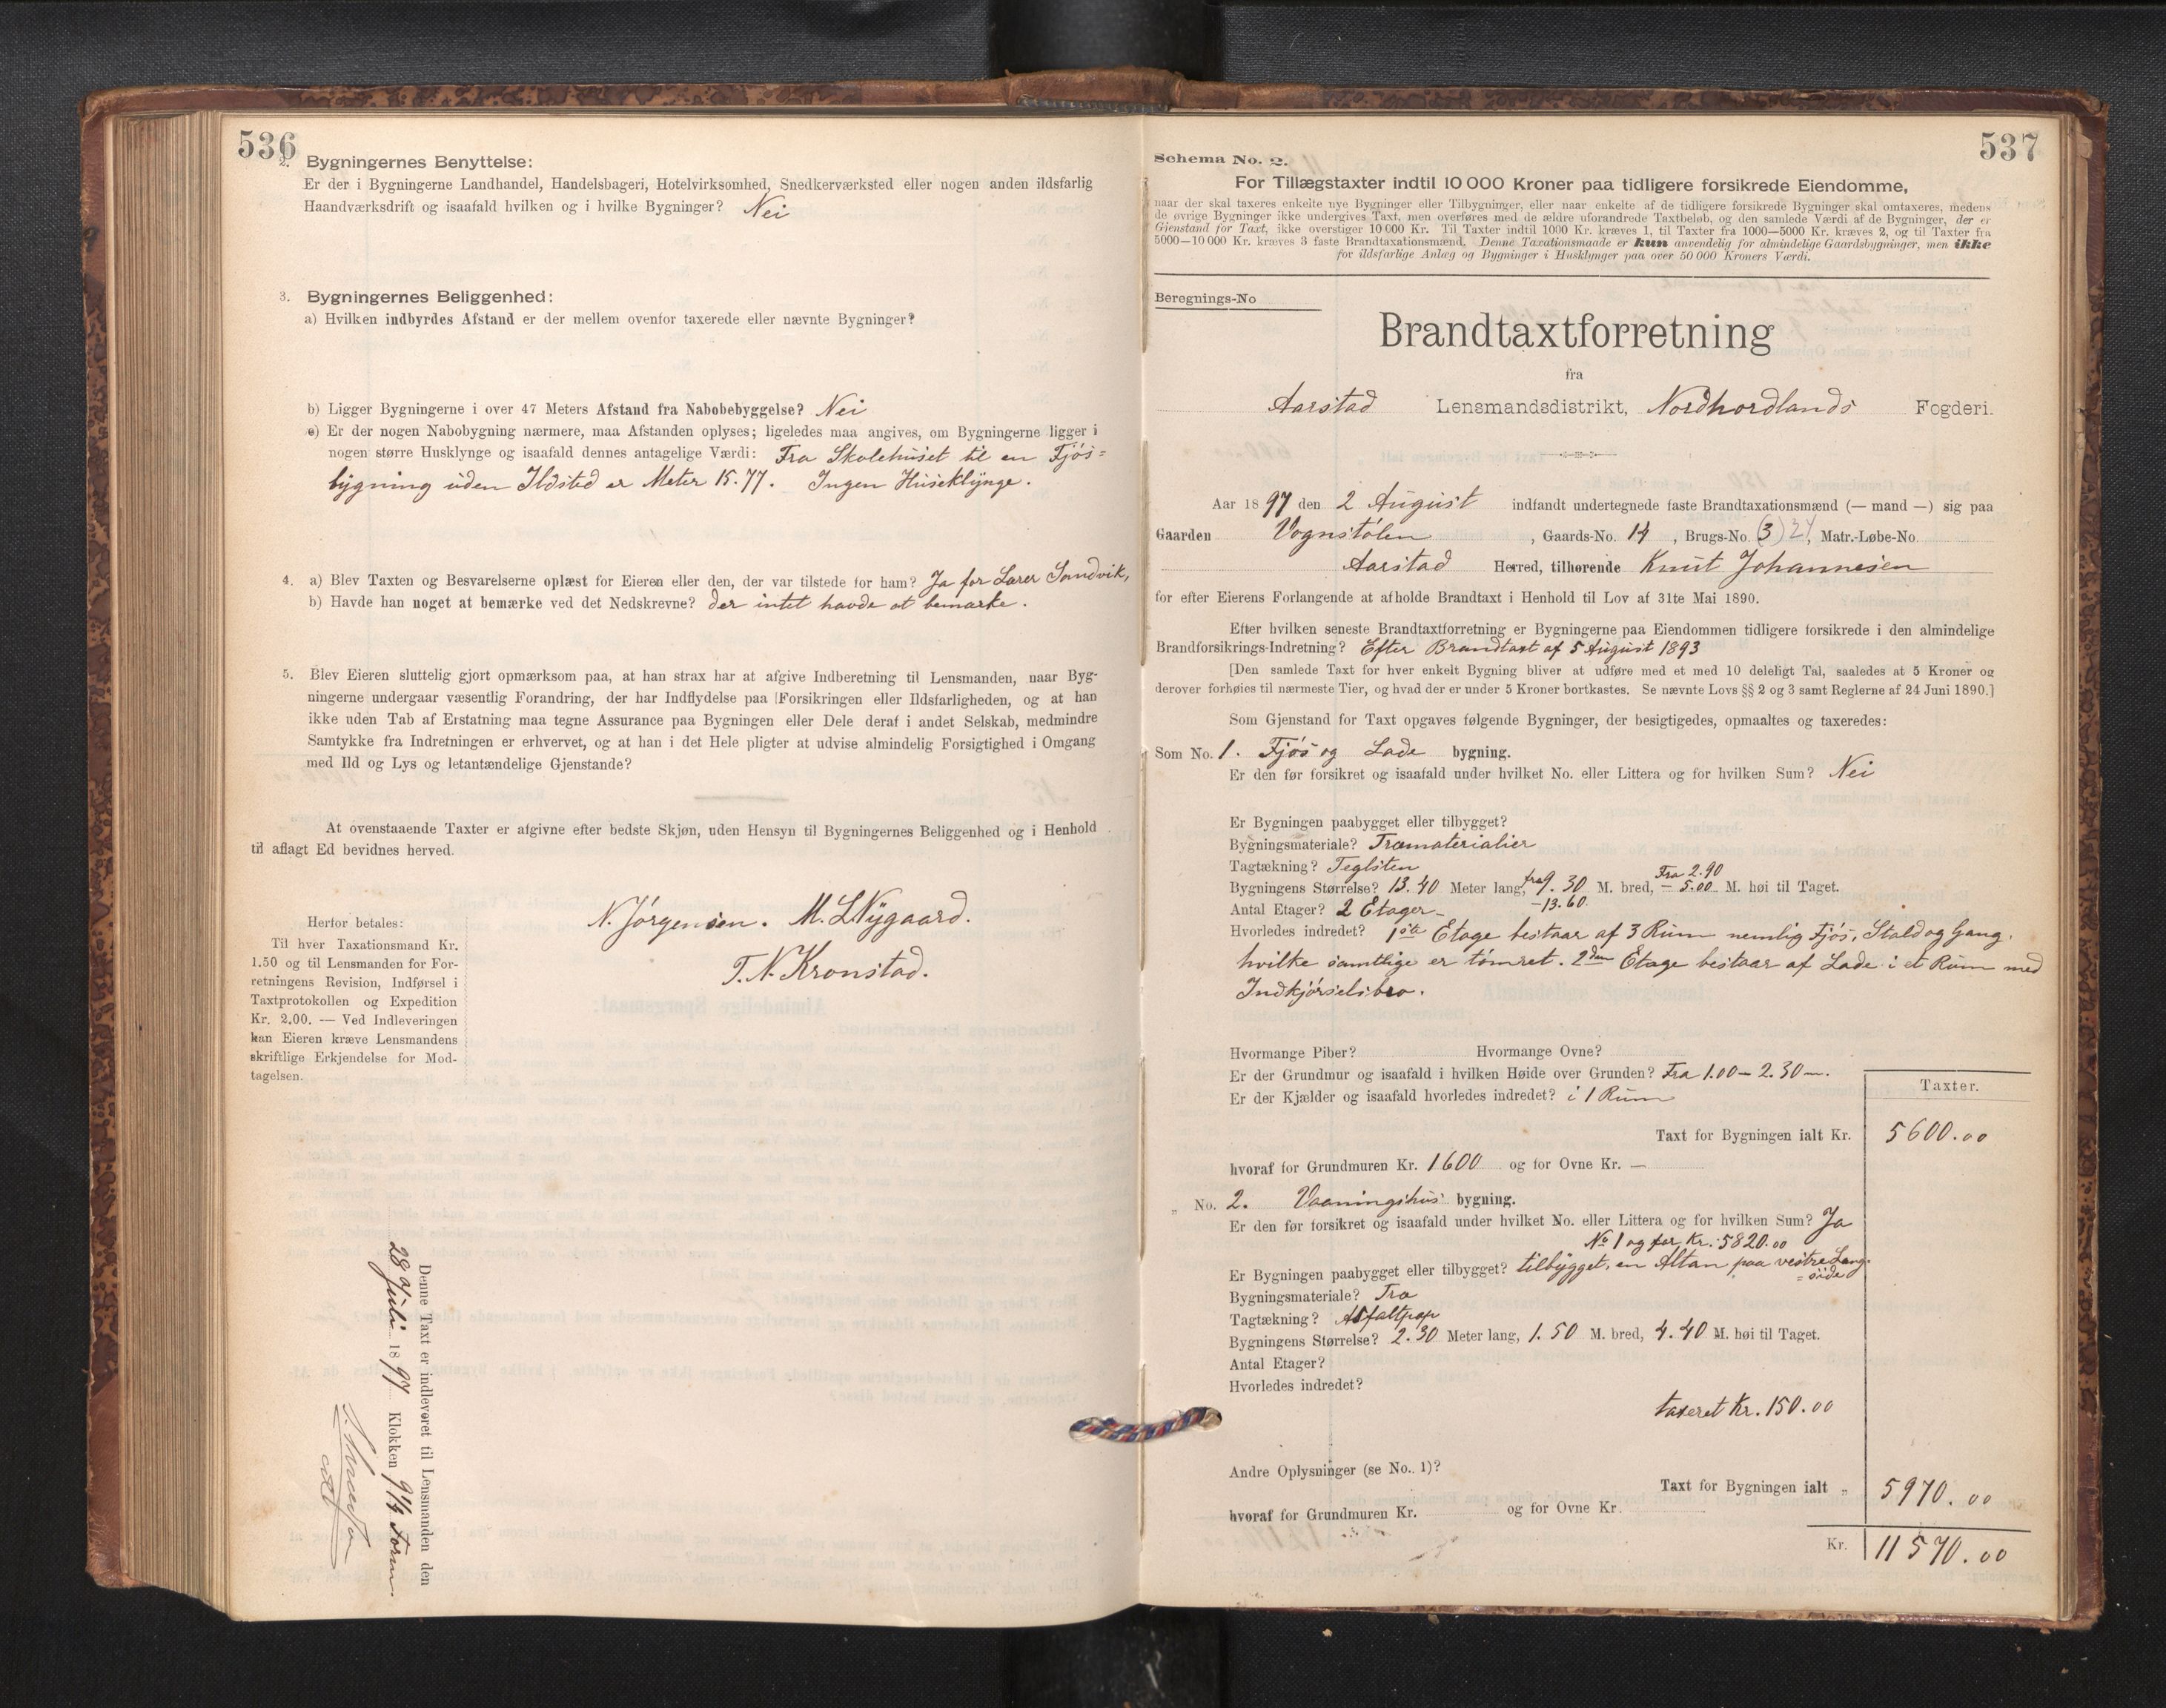 536
2. Bygningernes Benyttelse:
Er der i Bygningerne Landhandel, Handelsbageri, Hotelvirksomhed, Snedkerværksted eller nogen anden ildsfarlig
Haandværksdrift og isaafald hvilken og i hvilke Bygninger? Nei
3. Bygningernes Beliggenhed:
a) Hvilken indbyrdes Afstand er der mellem ovenfor taxerede eller nævnte Bygninger?
b) Ligger Bygningerne i over 47 Meters Afstand fra Nabobebyggelse? Nei
c) Er der nogen Nabobygning nærmere, maa Afstanden oplyses; ligeledes maa angives, om Bygningerne ligger i
nogen større Husklynge og isaafald dennes antagelige Værdi: Fra Skolehuset til en Fjøs=
bygning uden Ildsted er Meter 15.77. Ingen Huseklynge.
4. a) Blev Taxten og Besvarelserne oplæst for Eieren eller den, der var tilstede for ham? Ja for Lærer Sandvik,
b) Havde han noget at bemærke ved det Nedskrevne? der intet havde at bemærke.
5. Blev Eieren sluttelig gjort opmærksom paa, at han strax har at afgive Indberetning til Lensmanden, naar Byg-
ningerne undergaar væsentlig Forandring, der har Indflydelse paa Forsikringen eller Ildsfarligheden, og at han
ikke uden Tab af Erstatning maa tegne Assurance paa Bygningen eller Dele deraf i andet Selskab, medmindre
Samtykke fra Indretningen er erhvervet, og at han i det Hele pligter at udvise almindelig Forsigtighed i Omgang
med Ild og Lys og letantændelige Gjenstande?
At ovenstaaende Taxter er afgivne efter bedste Skjøn, uden Hensyn til Bygningernes Beliggenhed og i Henhold
til aflagt Ed bevidnes herved.
N. Jørgensen. M. L Nygaard.
T. N. Kronstad.
Herfor betales:
Til hver Taxationsmand Kr.
1.50 og til Lensmanden for For-
retningens Revision, Indførsel i
Taxtprotokollen og Expedition
Kr. 2.00. — Ved Indleveringen
kan Eieren kræve Lensmandens
skriftlige Erkjendelse for Mod-
tagelsen.
Denne Taxt er indleveret til Lensmanden den
28 Juli 1897 Klokken 9 1/4 Form.
537
Schema No. 2.
For Tillægstaxter indtil 10 000 Kroner paa tidligere forsikrede Eiendomme,
naar der skal taxeres enkelte nye Bygninger eller Tilbygninger, eller naar enkelte af de tidligere forsikrede Bygninger skal omtaxeres, medens
de øvrige Bygninger ikke undergives Taxt, men overføres med de ældre uforandrede Taxtbeløb, og den samlede Værdi af de Bygninger, der er
Gjenstand for Taxt, ikke overstiger 10 000 Kr. Til Taxter indtil 1000 Kr. kræves 1, til Taxter fra 1000—5000 Kr. kræves 2, og til Taxter fra
5000—10 000 Kr. kræves 3 faste Brandtaxationsmænd. Denne Taxationsmaade er kun anvendelig for almindelige Gaardsbygninger, men ikke
for ildsfarlige Anlæg og Bygninger i Husklynger paa over 50 000 Kroners Værdi.
Beregnings-No
Brandtaxtforretning
fra
Aarstad Lensmandsdistrikt, Nordhordlands Fogderi.
Aar 1897 den 2 August indfandt undertegnede faste Brandtaxationsmænd (— mand —) sig paa
Gaarden Vognstølen, Gaards-No. 14, Brugs-No. (3) 24, Matr.-Løbe-No.
Aarstad Herred, tilhørende Knut Johannesen
for efter Eierens Forlangende at afholde Brandtaxt i Henhold til Lov af 31te Mai 1890.
Efter hvilken seneste Brandtaxtforretning er Bygningerne paa Eiendommen tidligere forsikrede i den almindelige
Brandforsikrings-Indretning? Efter Brandtaxt af 5 August 1893
[Den samlede Taxt for hver enkelt Bygning bliver at udføre med et med 10 deleligt Tal, saaledes at 5 Kroner og
derover forhøies til nærmeste Tier, og hvad der er under 5 Kroner bortkastes. Se nævnte Lovs §§ 2 og 3 samt Reglerne af 24 Juni 1890.]
Som Gjenstand for Taxt opgaves følgende Bygninger, der besigtigedes, opmaaltes og taxeredes:
Som No. 1. Fjøs og Lade bygning.
Er den før forsikret og isaafald under hvilket No. eller Littera og for hvilken Sum? Nei
Er Bygningen paabygget eller tilbygget?
Bygningsmateriale? Træmaterialier
Tagtækning? Teglsten
Bygningens Størrelse? 13.40 Meter lang, fra 9.30 - 13.60 M. bred, Fra 2.90 - 5.00 M. høi til Taget.
Antal Etager? 2 Etager
Hvorledes indredet? 1ste Etage bestaar af 3 Rum nemlig Fjøs, Stald og Gang.
hvilke samtlige er tømret. 2den Etage bestaar af Lade i et Rum med
Indkjørselsbro.
Hvormange Piber? Hvormange Ovne?
Er der Grundmur og isaafald i hvilken Høide over Grunden? Fra 1.00 — 2.30 —.
Er der Kjælder og isaafald hvorledes indredet? i 1 Rum
Taxter.
Taxt for Bygningen ialt Kr. 5600.00
hvoraf for Grundmuren Kr. 1600 og for Ovne Kr. —
„ No. 2. Vaaningshus bygning.
Er den før forsikret og isaafald under hvilket No. eller Littera og for hvilken Sum? Ja
No 1 og for Kr. 5820.00
Er Bygningen paabygget eller tilbygget? tilbygget, en Altan paa vestre Lang-
=side
Bygningsmateriale? Træ
Tagtækning? Asfaltpap
Bygningens Størrelse? 2.30 Meter lang, 1.50 M. bred, 4.40 M. høi til Taget.
Antal Etager?
Hvorledes indredet?
taxeret Kr. 150.00
Andre Oplysninger (se No. 1)?
Taxt for Bygningen ialt „ 5970.00
hvoraf for Grundmuren Kr. og for Ovne Kr.
Kr. 11570.00